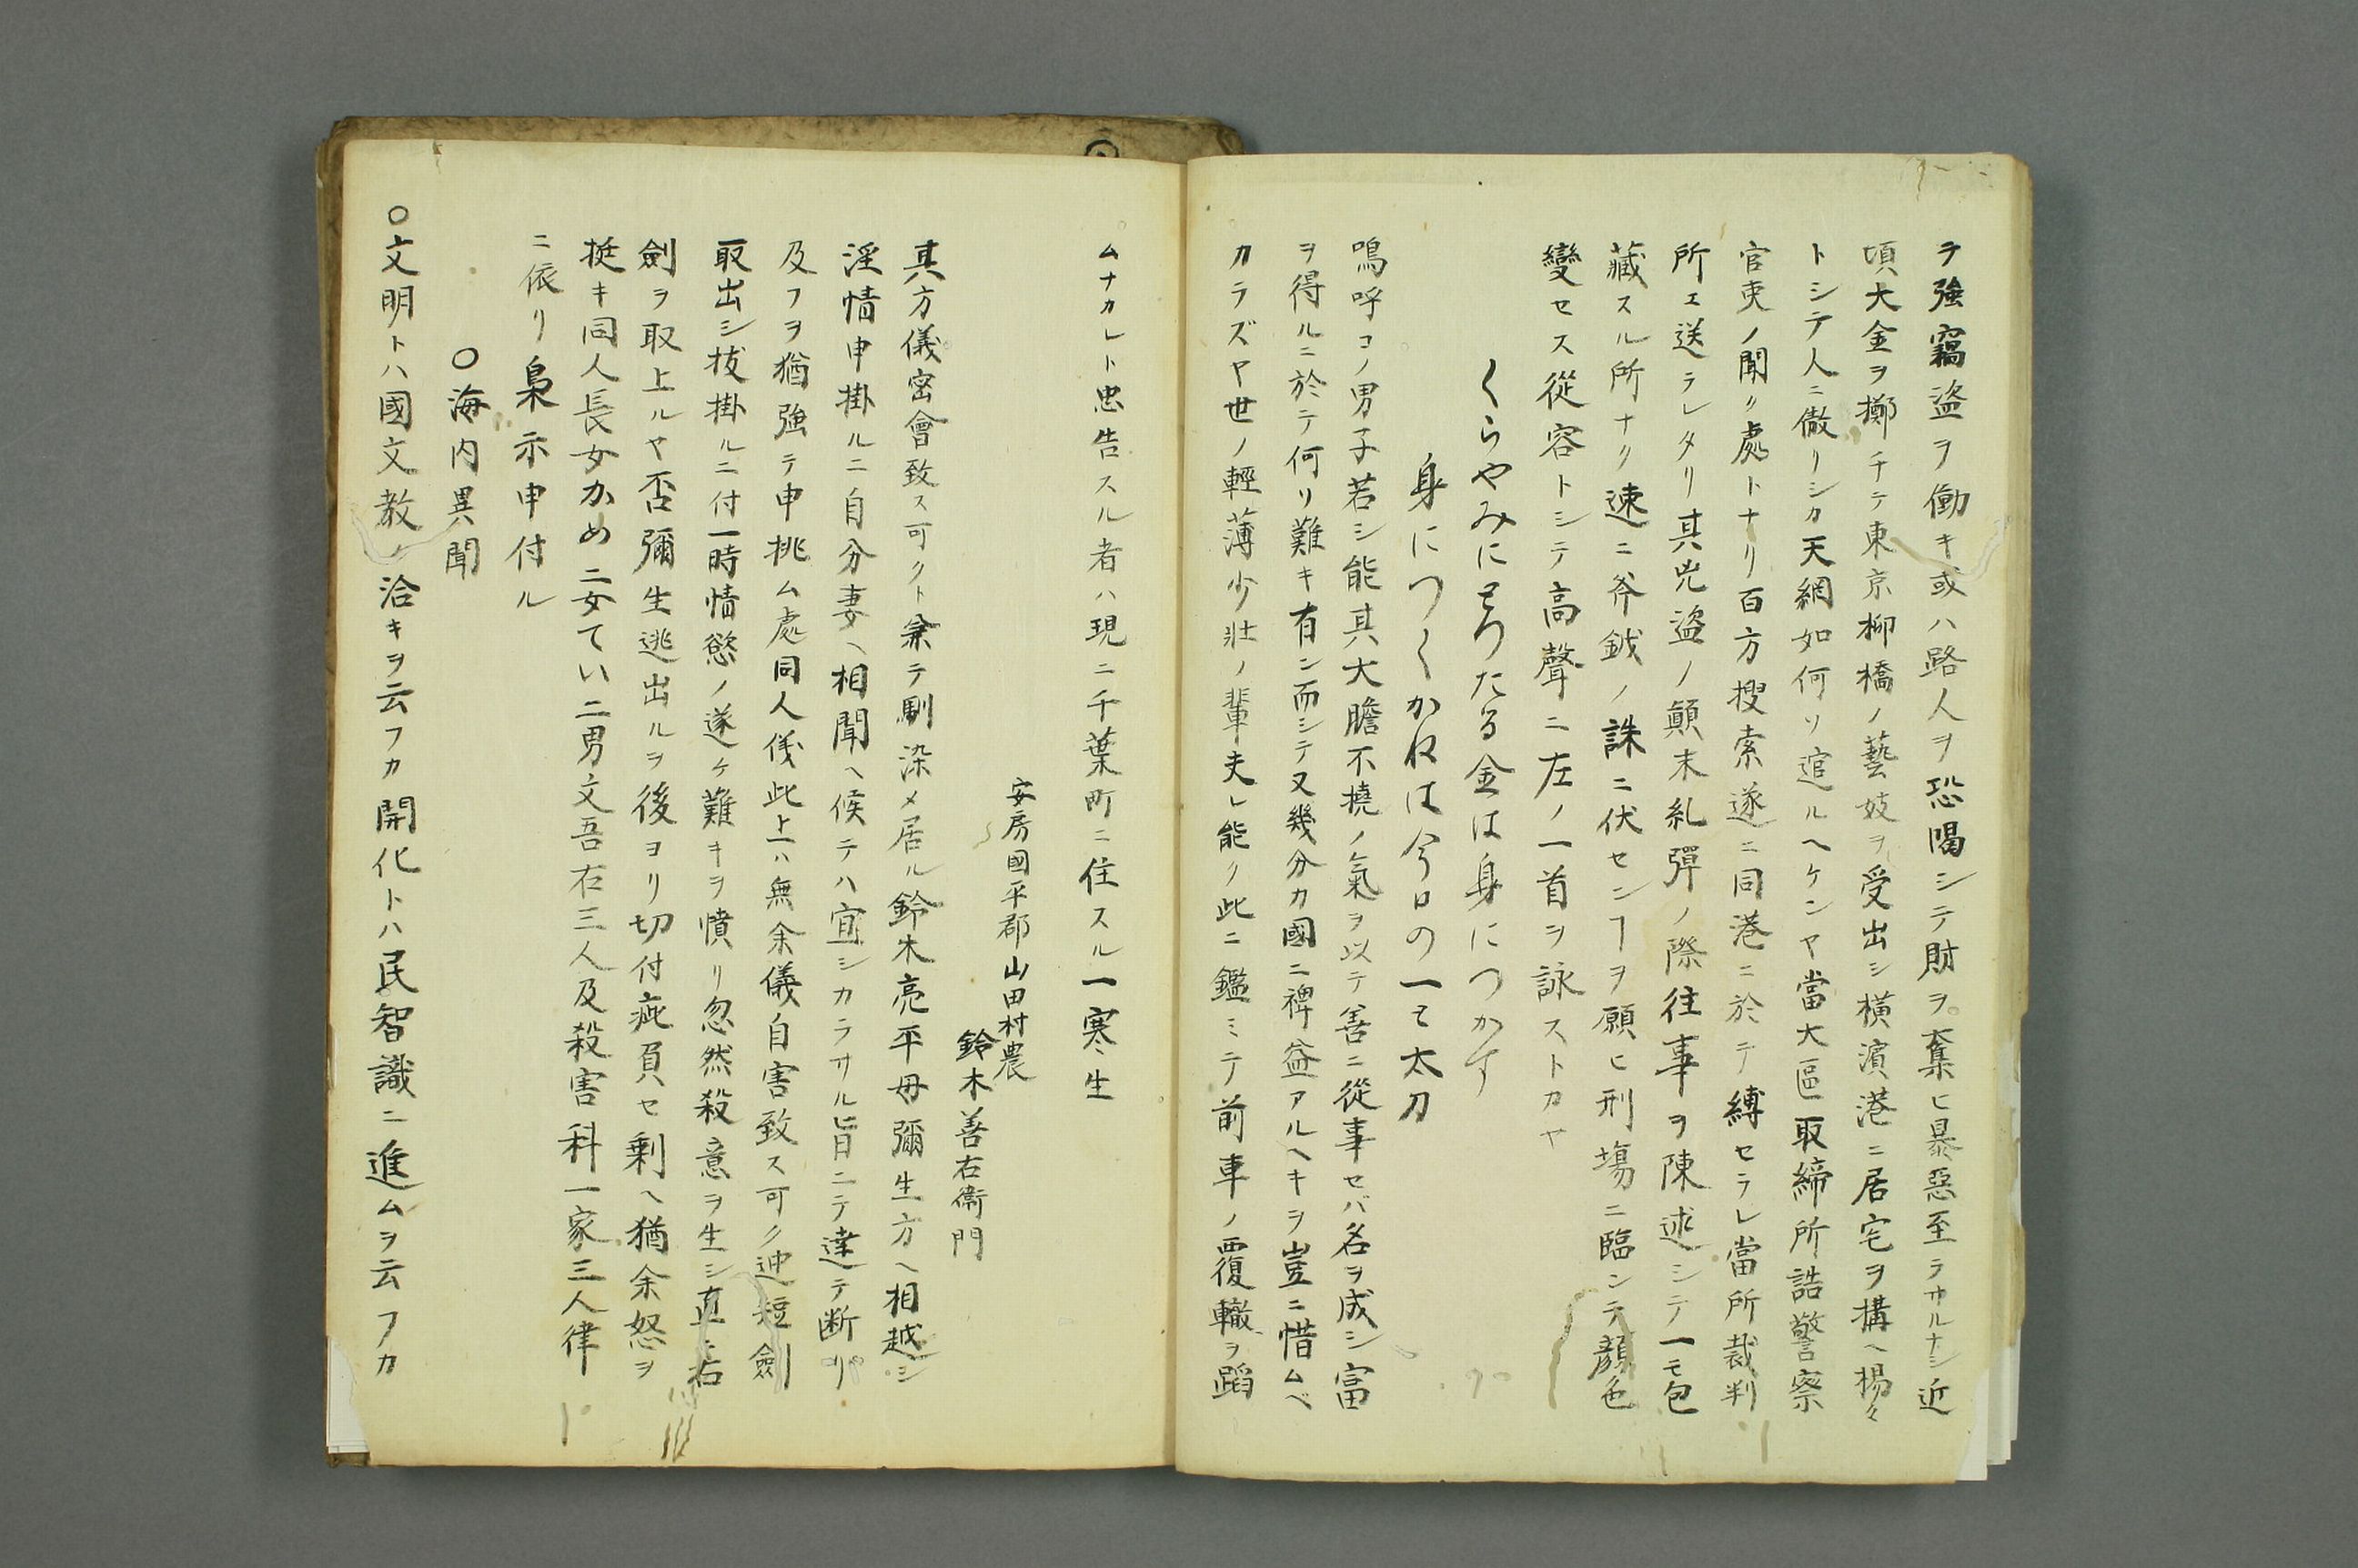 ヲ強竊盗ヲ働キ或ハ路人ヲ恐喝シテ財ヲ奪ヒ暴惡至ラサルナシ近
頃大金ヲ擲チテ東京柳橋ノ藝妓ヲ受出シ横濱港ニ居宅ヲ構ヘ揚々
トシテ人ニ傲リシカ天網如何ソ逭ルヘケンヤ當大區取締所詰警察
官吏ノ聞ク處トナリ百方搜索遂ニ同港ニ於テ縛セラレ當所裁判
所エ送ラレタリ其兇盗ノ顛末糺彈ノ際往事ヲ陳述シテ一モ包
藏スル所ナク速ニ斧鉞ノ誅ニ伏センヿヲ願ヒ刑塲ニ臨ンテ顔色
變セス從容トシテ高聲ニ左ノ一首ヲ詠ストカヤ
くらやみにとりたる金は身につかす
身につくかねは今日の一と太刀
嗚呼コノ男子若シ能其大膽不撓ノ氣ヲ以テ善ニ從事セバ名ヲ成シ富
ヲ得ルニ於テ何リ難キ有ン而シテ又幾分カ國ニ裨益アルヘキヲ豈ニ惜ムベ
カラズヤ世ノ輕薄少壮ノ輩夫レ能ク此ニ鑑ミテ前車ノ覆轍ヲ蹈
ムナカレト忠告スル者ハ現ニ千葉町ニ住スル一寒生
安房國平郡山田村農
鈴木善右衛門
其方儀密會致ス可クト兼テ馴染メ居ル鈴木亮平母彌生方ヘ相越シ
淫情申掛ルニ自分妻ヘ相聞ヘ候テハ宜シカラサル旨ニテ達テ断リ
及フヲ猶強テ申挑ム處同人儀此上ハ無余儀自害致ス可ク迚短劍
取出シ拔掛ルニ付一時情慾ノ遂ケ難キヲ憤リ忽然殺意ヲ生シ直ニ右
劍ヲ取上ルヤ否彌生逃出ルヲ後ヨリ切付疵負セ剰ヘ猶余怒ヲ
挺キ同人長女かめ二女てい二男文吾右三人及殺害科一家三人律
ニ依リ梟示申付ル
○海内異聞
○文明トハ國文教ノ洽キヲ云フカ開化トハ民智識ニ進ムヲ云フカ